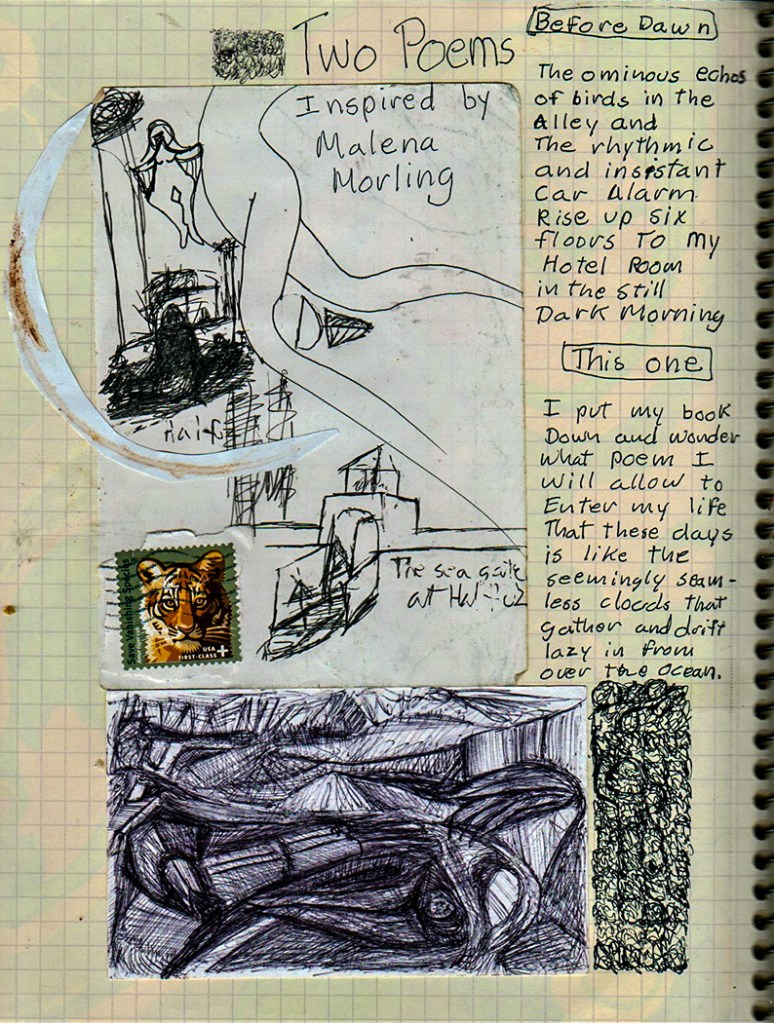 Two Poems
Inspired by
Malena
Morling
The sea gate
at
Save Vanishing Species
USA
FIRST-CLASS
Before Dawn
The ominous echos
of birds in the
Alley and
The rhythmic
and insistant
Car Alarm
Rise up six
floors To my
Hotel Room
in the still
Dark Morning
This one
I put my book
Down and wonder
what poem I
will allow to
Enter my life
That these days
is like the
seemingly seam-
less clouds that
gather and drift
lazy in from
over the ocean.